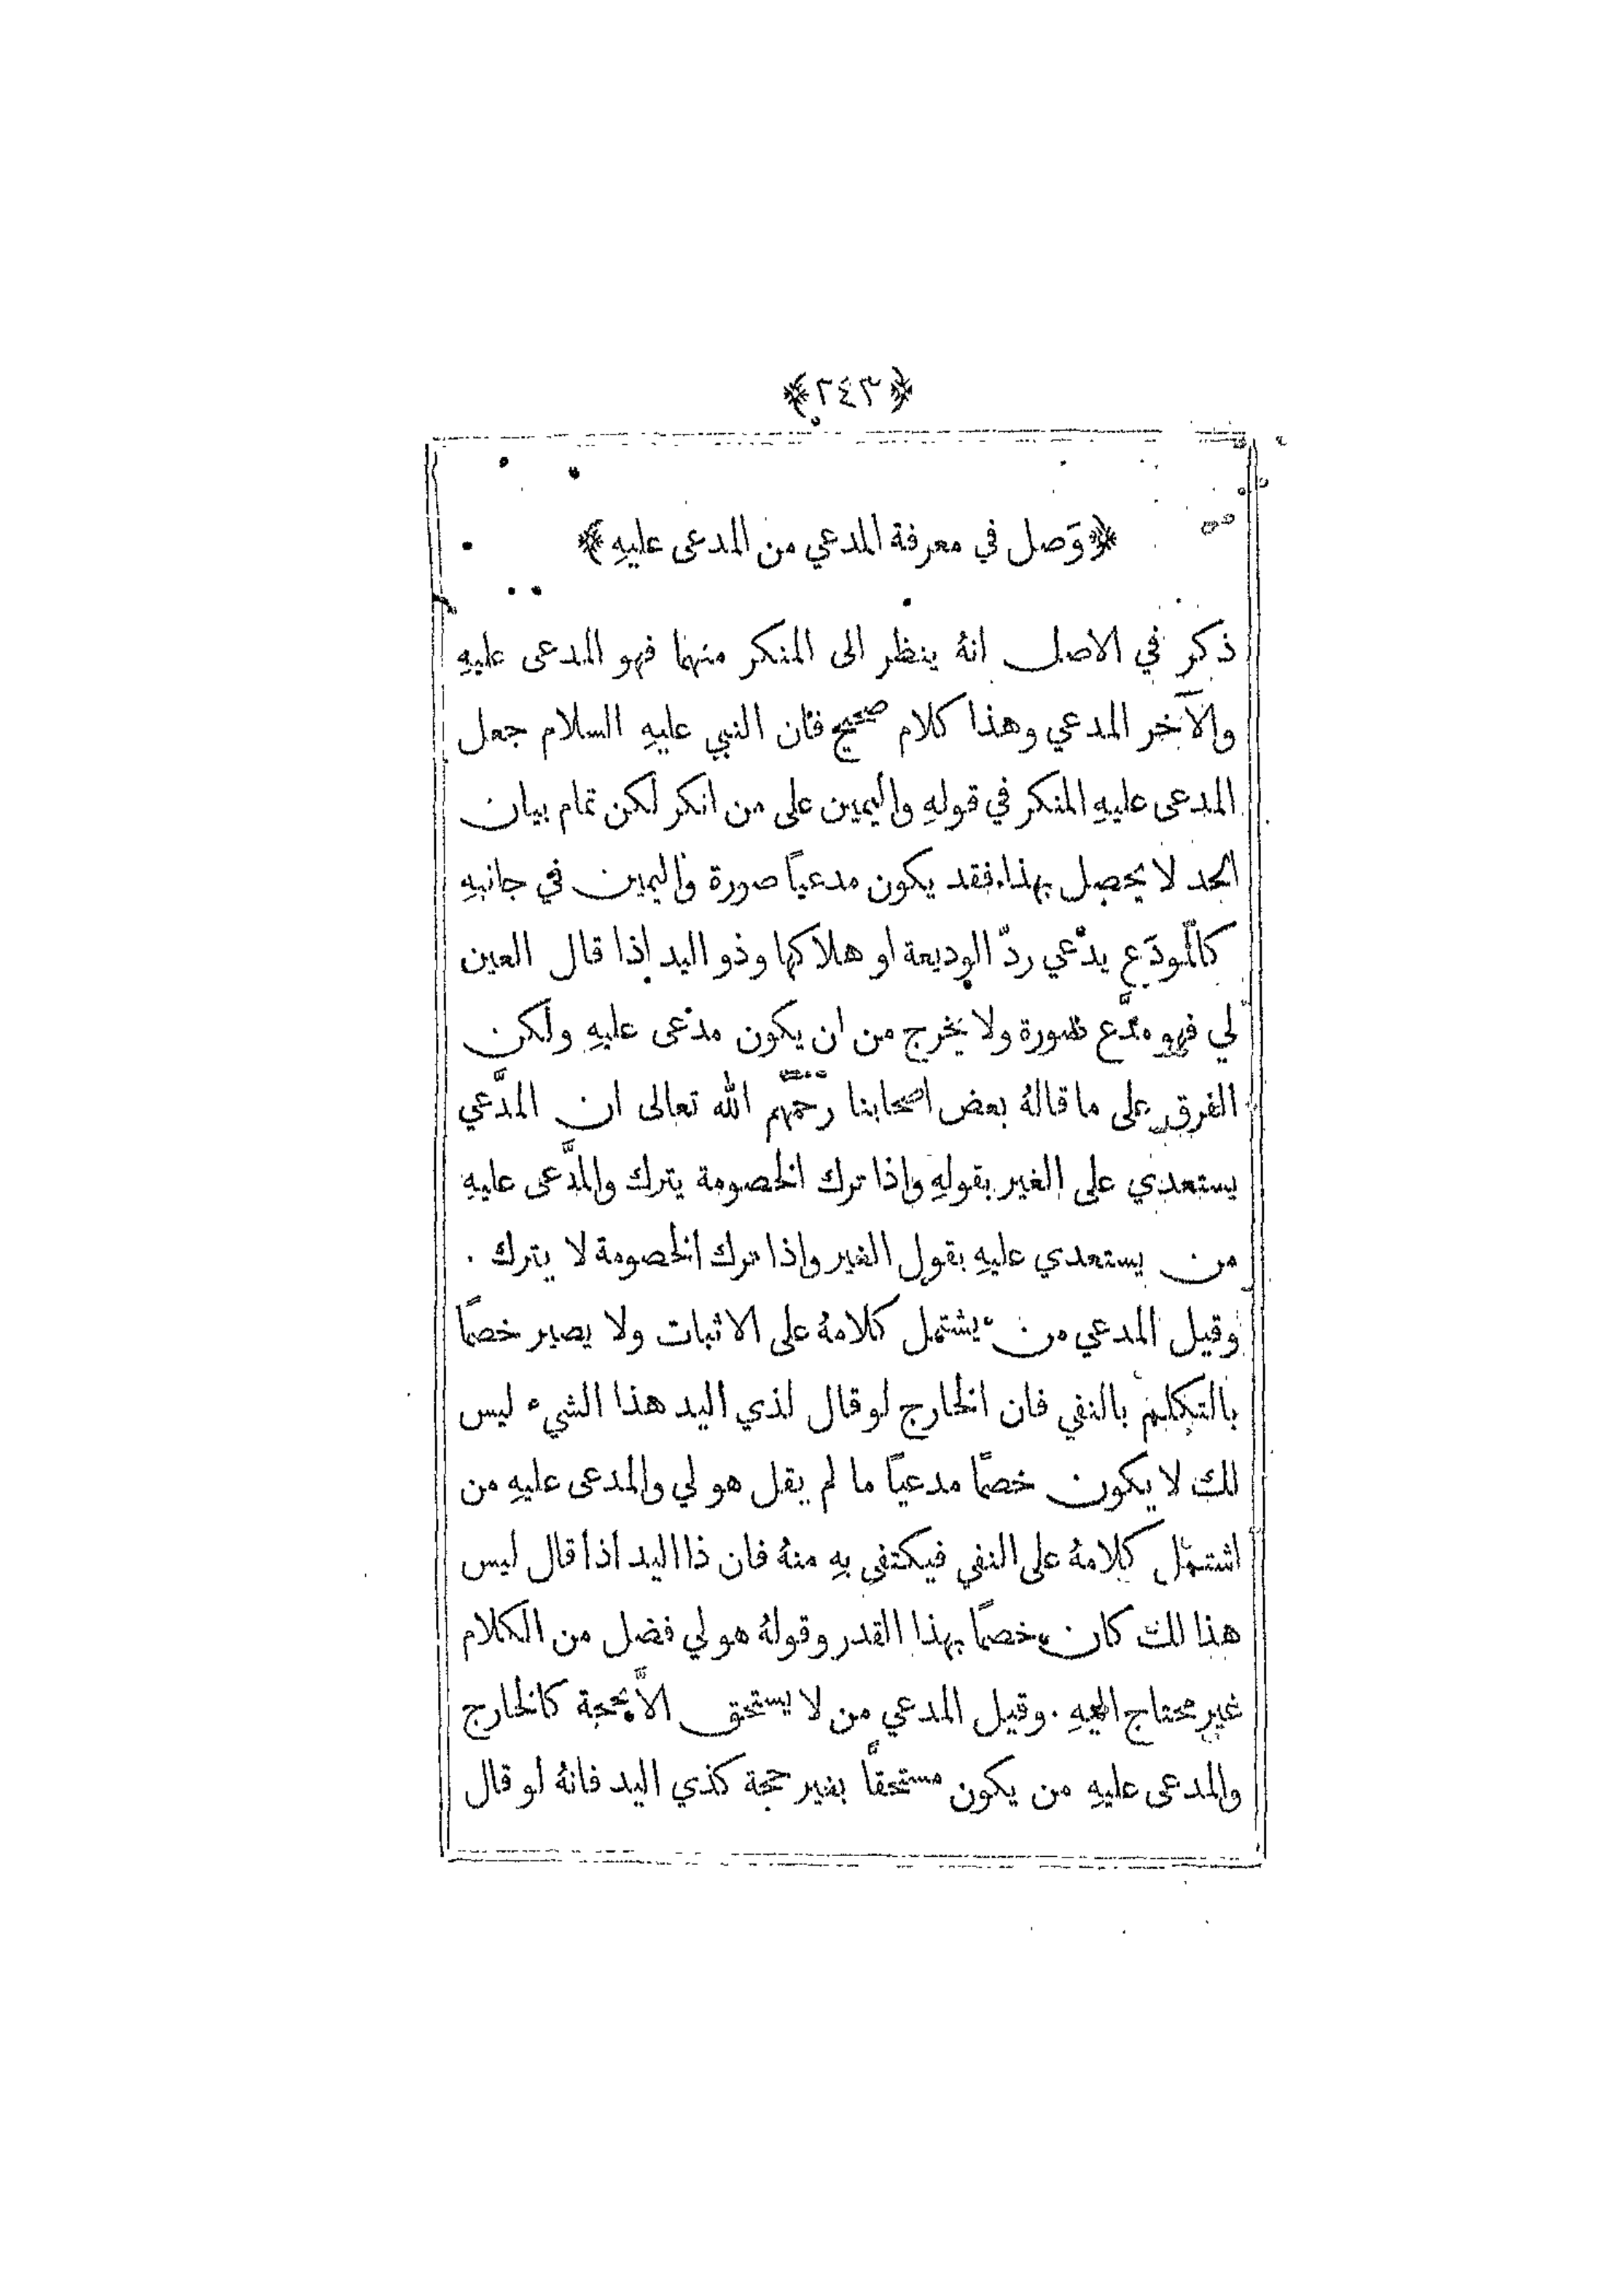 ﴿٢٤٣﴾
﴿وَصل في معرفة المدعي من المدعى عليهِ﴾
ذكر في الاصل انهُ ينظر الى المنكر منهما فهو المدعى عليهِ
والآخر المدعي وهذا كلام صحيح فان النبي عليهِ السلام جعل
المدعى عليهِ المنكر في قولهِ واليمين على من انكر لكن تمام بيان
الحد لا يحصل بهذا فقد يكون مدعياً صورة واليمين في جانبهِ
كالمودَع يدَّعي ردّ الوديعة او هلاكها وذو اليد اذا قال العين
لي فهو مدَّع صورة ولا يخرج من ان يكون مدَّعى عليهِ ولكن
الفرق على ما قالهُ بعض اصحابنا رحمهم الله تعالى ان المدَّعي
يستعدي على الغير بقولهِ واذا ترك الخصومة يترك والمدَّعى عليهِ
من يستعدي عليهِ بقول الغير واذا ترك الخصومة لا يترك .
وقيل المدعي من يشتمل كلامهُ على الاثبات ولا يصير خصماً
بالتكلم بالنفي فان الخارج لو قال لذي اليد هذا الشيء ليس
لك لا يكون خصماً مدعياً ما لم يقل هو لي والمدعى عليهِ من
اشتمل كلامهُ على النفي فيكتفى بهِ منهُ فان ذا اليد اذا قال ليس
هذا لك كان خصماً بهذا القدر وقولهُ هو لي فضل من الكلام
غير محتاج اليهِ . وقيل المدعي من لا يستحق الاَّ بحجة كالخارج
والمدعى عليهِ من يكون مستحقاً بغير حجة كذي اليد فانهُ لو قال